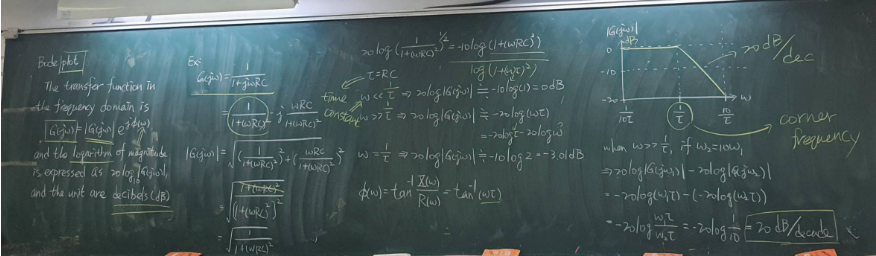 Bode plot
The transfer function in
the frequency domain is
G(jω) = |G(jω)| e^{jϕ(ω)}
and the logarithm of magnitude
is expressed as 20log₁₀|G(jω)|,
and the unit are decibels (dB)
Ex:
G(jω) = 1/(1+jωRC)
= 1/(1+(ωRC)²) - j ωRC/(1+(ωRC)²)
|G(jω)| = √((1/(1+(ωRC)²))² + (ωRC/(1+(ωRC)²))²)
= √(1+(ωRC)²/(1+(ωRC)²)²)
= √(1/(1+(ωRC)²))
20log(1/(1+(ωRC)²))^{1/2} = -10log(1+(ωRC)²)
τ=RC
log(1+(ωτ)²)
time constant
ω << 1/τ ⇒ 20log|G(jω)| ≒ -10log(1) = 0dB
ω >> 1/τ ⇒ 20log|G(jω)| ≒ -20log(ωτ)
= -20logτ - 20logω
ω = 1/τ ⇒ 20log|G(jω)| ≒ -10log2 = -3.01dB
ϕ(ω) = tan⁻¹ X(ω)/R(ω) = tan⁻¹(ωτ)
|G(jω)|
dB
0
-10
-20
1/10τ
1/τ
10/τ
ω
20 dB/dec
corner
frequency
when ω >> 1/τ, if ω₂=10ω₁
⇒ 20log|G(jω₁)| - 20log|G(jω₂)|
= -20log(ω₁τ) - (-20log(ω₂τ))
= -20log ω₁τ/ω₂τ = -20log 1/10 = 20 dB/decade